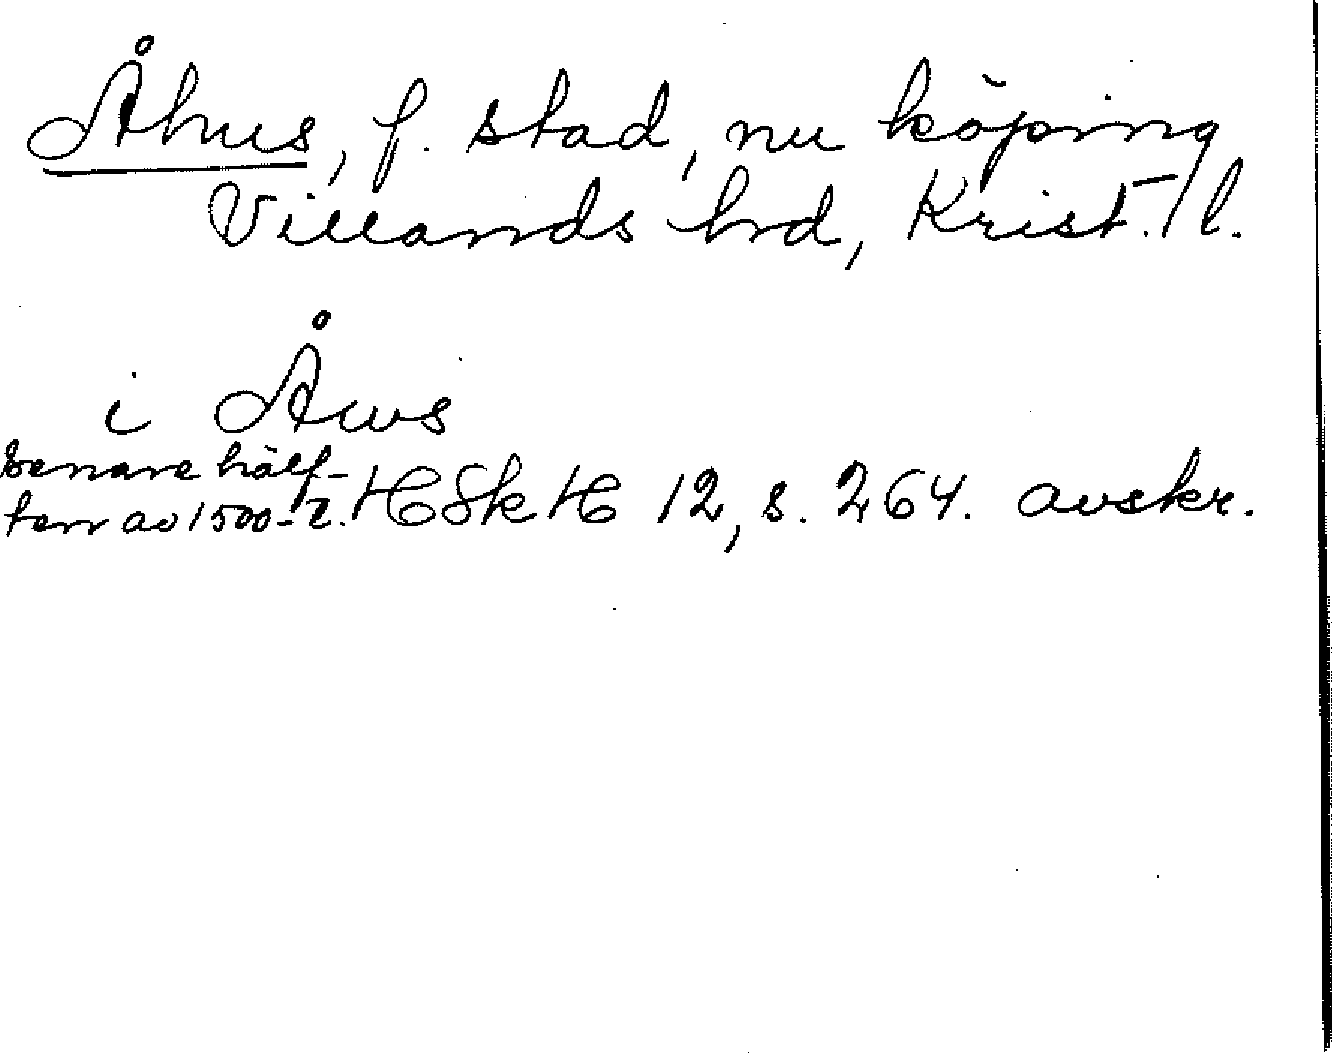 Åhus, f. stad, nu köping
Villands hrd, Krist. l.
i Åws
senare hälf-
ten av 1500-t. HSkH 12, s. 264. avskr.